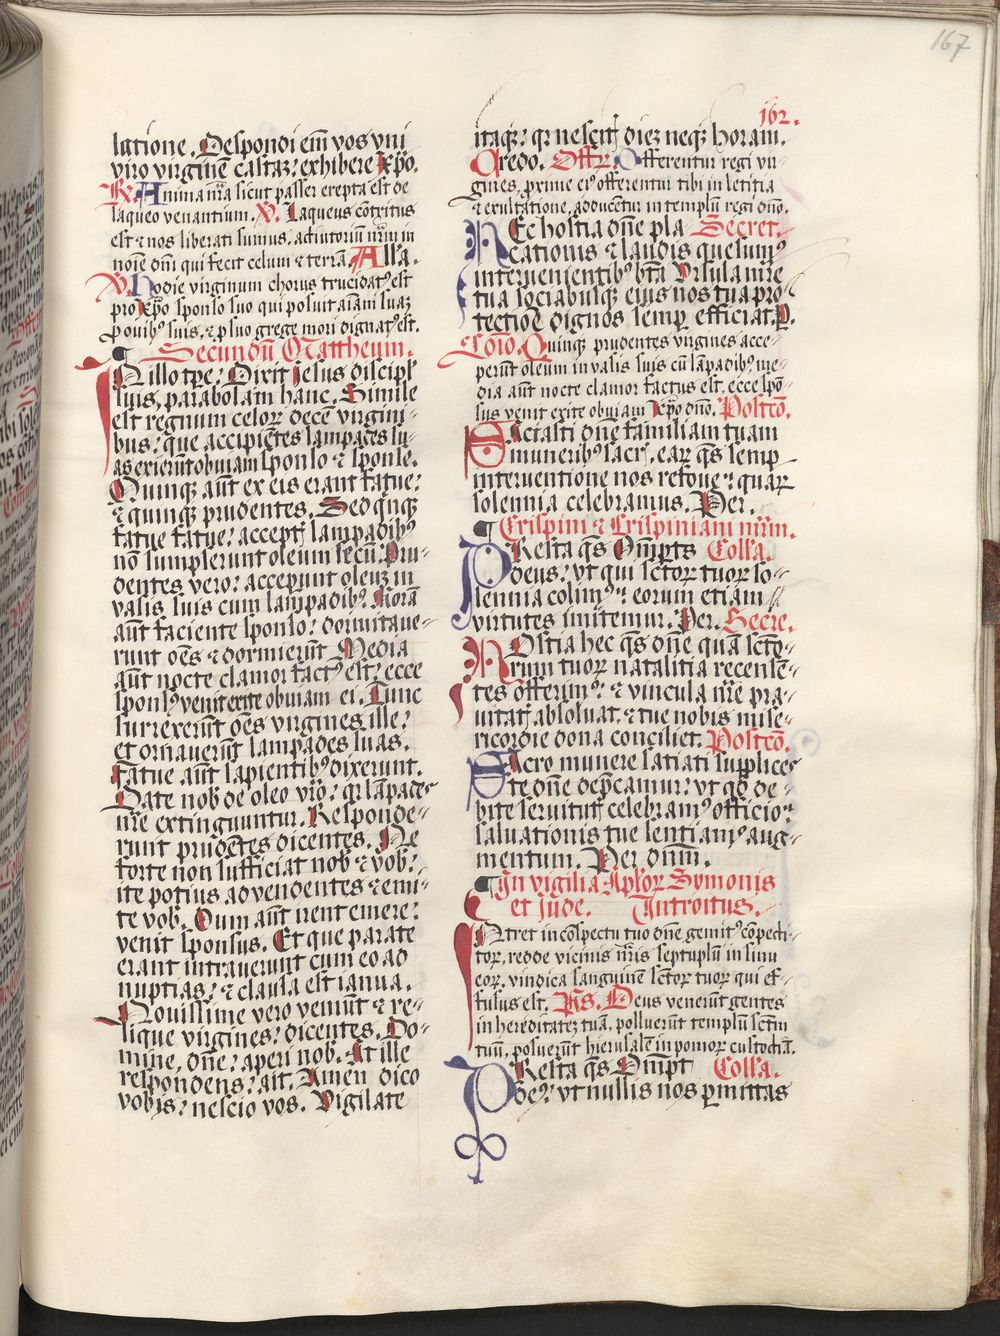 167
162.
latione. Despondi em̄ vos vni
viro virginē castaꝫ: exhibere xp̄o.
R. Anima nr̄a sicut passer erepta est de
laqueo venantium. V. Laqueus cōtritus
est ⁊ nos liberati sumus, adiutoriū nr̄m in
noīe dn̄i qui fecit celum ⁊ terrā. Alla.
V. Hodie virginum chorus trucidatꝰ est
pro xp̄o sponso suo qui posuit aīam suaꝫ
ꝓ ovibꝰ suis, ⁊ ꝓ suo grege mori dignatꝰ est.
¶ Secundū Mattheum.
IN illo tp̄e: Dixit Jesus discipl'
suis, parabolam hanc. Simile
est regnum celoꝝ decē virgini-
bus: que accipiētes lampades su-
as exierūt obuiam sponso ⁊ sponse.
Quinqꝫ aūt ex eis erant fatue:
⁊ quinqꝫ prudentes. Sed qnqꝫ
fatue fatue: acceptꝭ lampadibꝰ
nō sumpserunt oleum secū: Pru-
dentes vero: acceperunt oleuꝫ in
vasis suis cum lampadibꝰ. Morā
aūt faciente sponso: dormitaue-
runt oēs ⁊ dormierūt Media
aūt nocte clamor factꝰ est: ecce
sponsꝰ venit exite obuiam ei. Tunc
surrexerūt oēs virgines ille:
et ornauerūt lampades suas.
Fatue aūt sapientibꝰ dixerunt.
Date nob̄ de oleo vr̄o: qꝛ lāpades
nr̄e extinguuntur. Responde-
runt prudētes dicentes. Ne
forte non sufficiat nob̄ ⁊ vob̄:
ite potius ad vendentes ⁊ emi-
te vob̄. Dum aūt irent emere:
venit sponsus. Et que parate
erant intrauerunt cum eo ad
nuptias: ⁊ clausa est ianua.
Nouissime vero veniūt ⁊ re-
lique virgines: dicentes. Do-
mine, dn̄e: aperi nob̄. At ille
respondens: ait. Amen dico
vobis: nescio vos. Vigilate
itaqꝫ: qꝛ nescitꝭ dieꝫ neqꝫ horam.
Credo. Offꝝ. Offerentur regi vir-
gines, prime eiꝰ offerentur tibi in letitia
⁊ exultatione, adducētur in templū regi dn̄o.
HEc hostia dn̄e pla- Secret.
cationis ⁊ laudis quesumꝰ
intervenientibꝰ btā Ursula mr̄e
tua sociabusqꝫ eius nos tua pro-
tectiōe dignos semp̄ efficiat. P.
Com̄o. Quinqꝫ prudentes virgines acce-
perūt oleum in vasis suis cū lāpadibꝰ, me-
dia aūt nocte clamor factus est, ecce spō-
sus venit exite obuiam xp̄o dn̄o. Postcō.
SAciasti dn̄e familiam tuam
muneribꝰ sacrꝭ, eaꝝ qs̄ semp̄
interventione nos refoue: quaꝝ
solennia celebramus. Per.
¶ Crispini ⁊ Crispiniani mr̄m.
PResta qs̄ Om̄pts Coll'a.
deus: vt qui sctōꝝ tuoꝝ so-
lennia colimꝰ: eorum etiam
virtutes imitemur. Per. Secre.
HOstia hec qs̄ dn̄e quā sctō-
rum tuoꝝ natalitia recensē-
tes offerimꝰ: ⁊ vincula nr̄e pra-
uitatꝭ absoluat, ⁊ tue nobis mise-
ricordie dona conciliet. Postcō.
SAcro munere satiati supplices
te dn̄e dep̄camur: vt qd̄ de-
bite seruitutꝭ celebramꝰ officio:
saluationis tue sentiamꝰ aug-
mentum. Per dn̄m.
¶ In vigilia Aplōꝝ Symonis
et Jude. Introitus.
INtret in cōspectu tuo dn̄e gemitꝰ cōpedi-
toꝝ, redde vicinis nr̄is septuplū in sinu
eoꝝ, vindica sanguinē sctōꝝ tuoꝝ qui ef-
fusus est. Ps. Deus venerūt gentes
in hereditateꝫ tuā, polluerūt templū sctm̄
tuū, posuerūt hierusalē in pomoꝝ custodiā.
PResta qs̄ Om̄pt Coll'a.
deꝰ: vt nullis nos ꝑmittas